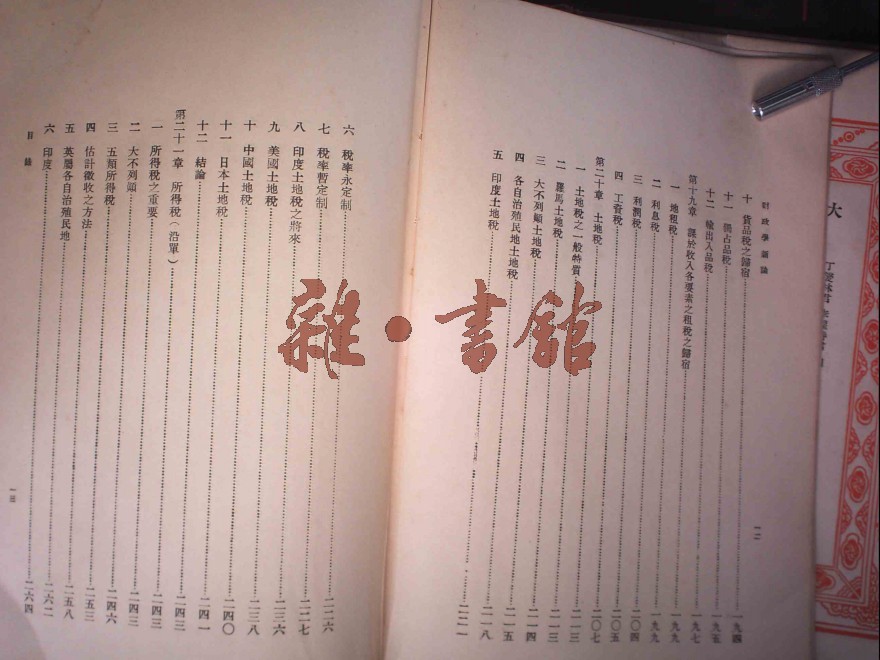 大
財政學新論
十 貨品稅之歸宿……一九四
十一 獨占品稅……一九五
十二 輸出入品稅……一九七
第十九章 課於收入各要素之租稅之歸宿……一九九
一 地租稅……一九九
二 利息稅……二〇四
三 利潤稅……二〇五
四 工資稅……二〇七
第二十章 土地稅……二一三
一 土地稅之一般特質……二一三
二 羅馬土地稅……二一四
三 大不列顛土地稅……二一五
四 各自治殖民地土地稅……二一八
五 印度土地稅……二二一
一二
六 稅率永定制……二二六
七 稅率暫定制……二二七
八 印度土地稅之將來……二三六
九 美國土地稅……二三八
十 中國土地稅……二四〇
十一 日本土地稅……二四一
十二 結論……二四三
第二十一章 所得稅（沿革）……二四三
一 所得稅之重要……二四三
二 大不列顛……二四六
三 五類所得稅……二五三
四 估計徵收之方法……二五八
五 英屬各自治殖民地……二六二
六 印度……二六四
目錄
一三
雜·書館